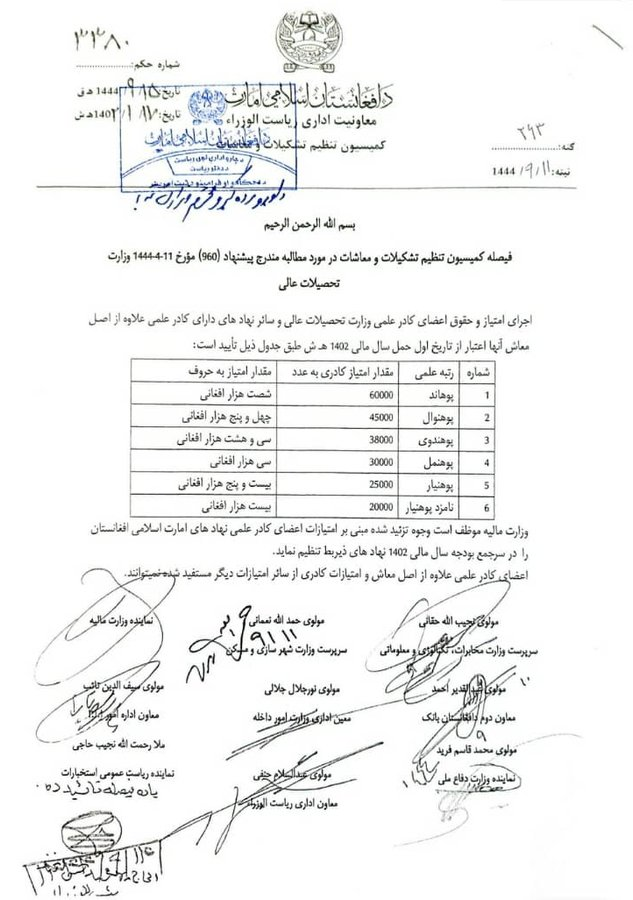 ۳۳۸۰
شماره حکم:
تاریخ: ۱۵ / ۹ / 1444 هـ ق
تاریخ: ۱۷ / ۱ / 1402 هـ ش
د افغانستان اسلامي امارت
معاونیت اداری ریاست الوزراء
کمیسیون تنظیم تشکیلات و معاشات
گڼه: ۲۹۳
نېټه: ۱۱ / ۹ / 1444
د افغانستان اسلامي امارت
بسم الله الرحمن الرحیم
فیصله کمیسیون تنظیم تشکیلات و معاشات در مورد مطالبه مندرج پیشنهاد (960) مؤرخ 11-4-1444 وزارت
تحصیلات عالی
اجرای امتیاز و حقوق اعضای کادر علمی وزارت تحصیلات عالی و سائر نهاد های دارای کادر علمی علاوه از اصل
معاش آنها اعتبار از تاریخ اول حمل سال مالی 1402 هـ ش طبق جدول ذیل تأیید است:
شماره رتبه علمی مقدار امتیاز کادری به عدد مقدار امتیاز به حروف
1 پوهاند 60000 شصت هزار افغانی
2 پوهنوال 45000 چهل و پنج هزار افغانی
3 پوهندوی 38000 سی و هشت هزار افغانی
4 پوهنمل 30000 سی هزار افغانی
5 پوهنیار 25000 بیست و پنج هزار افغانی
6 نامزد پوهنیار 20000 بیست هزار افغانی
وزارت مالیه موظف است وجوه تزئید شده مبنی بر امتیازات اعضای کادر علمی نهاد های امارت اسلامی افغانستان
را در سرجمع بودجه سال مالی 1402 نهاد های ذیربط تنظیم نماید.
اعضای کادر علمی علاوه از اصل معاش و امتیازات کادری از سائر امتیازات دیگر مستفید شده نمیتوانند.
مولوی نجیب الله حقانی
سرپرست وزارت مخابرات، تکنالوژی و معلوماتی
مولوی حمد الله نعمانی
سرپرست وزارت شهر سازی و مسکن
نماینده وزارت مالیه
مولوی عبدالقدیر احمد
معاون دوم دافغانستان بانک
مولوی نورجلال جلالی
معین اداری وزارت امور داخله
مولوی سیف الدین تائب
معاون اداره امور
مولوی محمد قاسم فرید
نماینده وزارت دفاع ملی
مولوی عبدالسلام حنفی
معاون اداری ریاست الوزراء
ملا رحمت الله نجیب حاجی
نماینده ریاست عمومی استخبارات